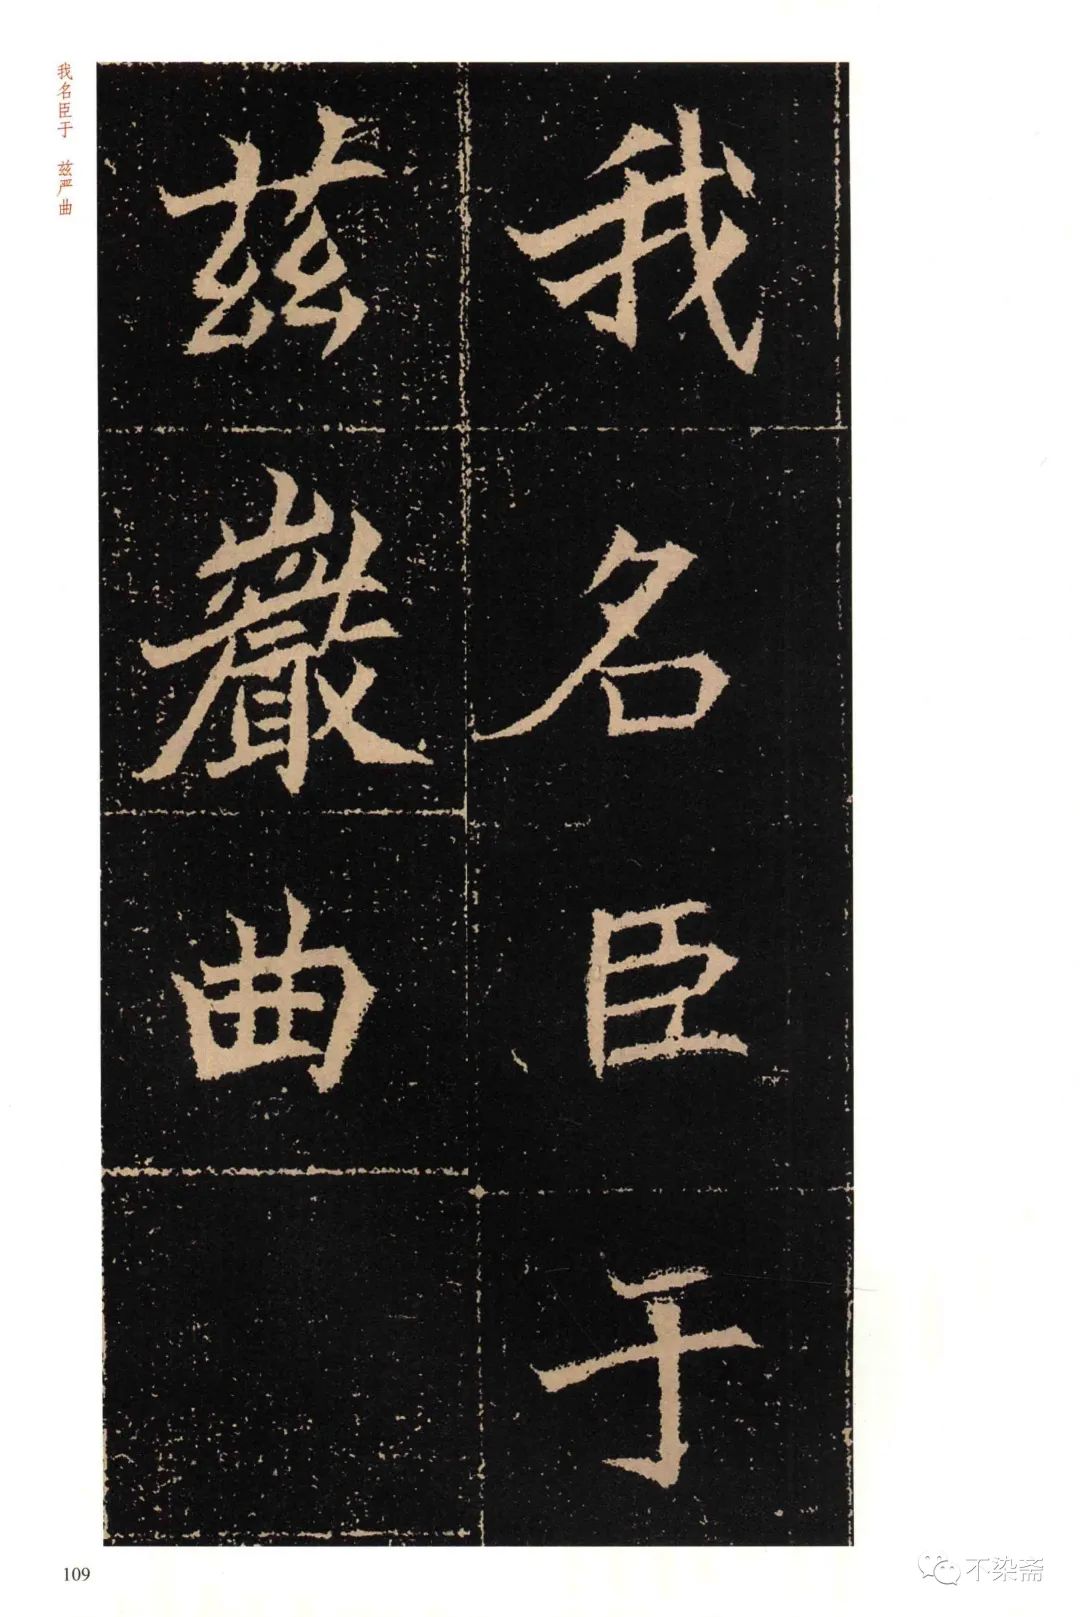 我名臣于
兹嚴曲
我名臣于 兹严曲
109
不染斋